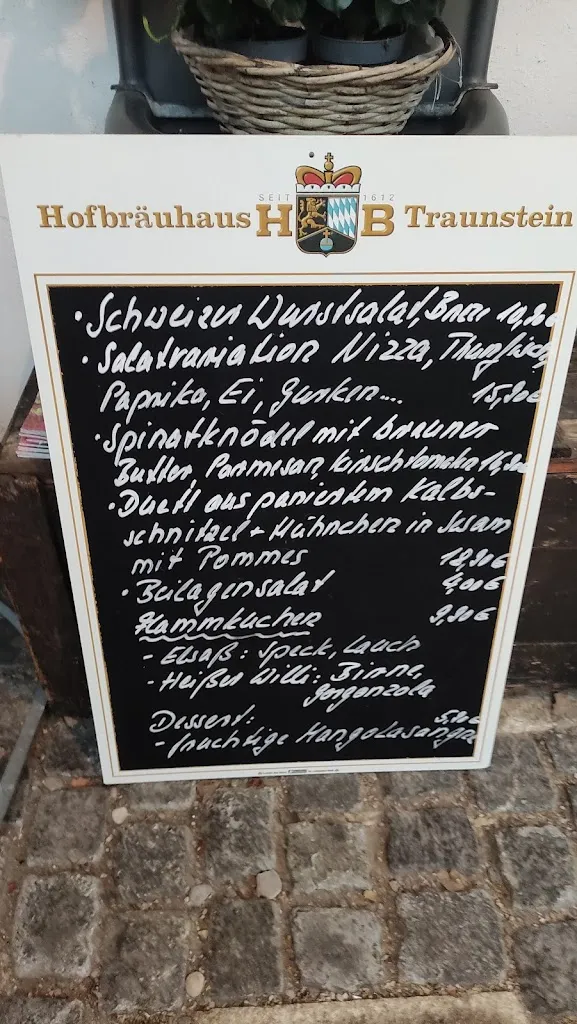 SEIT 1612
Hofbräuhaus HB Traunstein
• Schweizer Wurstsalat, Breze 14,90
• Salatvariation Nizza, Thunfisch,
Paprika, Ei, Gurken.... 15,90€
• Spinatknödel mit brauner
Butter, Parmesan, Kirschtomaten
• Duett aus paniertem Kalbs-
schnitzel + Hühnchen in Sesam
mit Pommes 18,90€
• Beilagensalat 4,00€
Flammkuchen 9,90€
- Elsaß: Speck, Lauch
- Heißer Willi: Birne,
Gorgonzola
Dessert: 5,90€
- fruchtige Mangolasagne